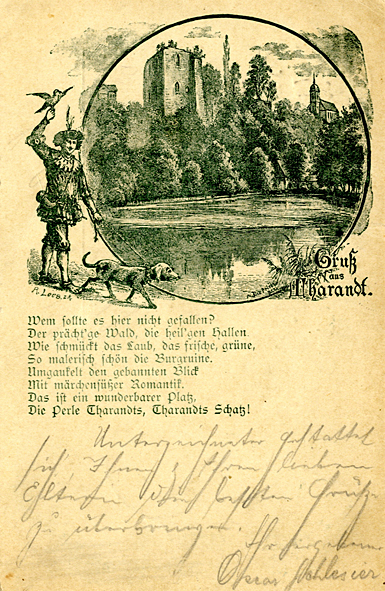 Gruß
aus
Tharandt.
Wem sollte es hier nicht gefallen?
Der prächt'ge Wald, die heil'gen Hallen.
Wie schmückt das Laub, das frische, grüne,
So malerisch schön die Burgruine.
Umgaukelt den gebannten Blick
Mit märchensüßer Romantik.
Das ist ein wunderbarer Platz,
Die Perle Tharandts, Tharandts Schatz!
Unterzeichneter gestattet
sich Ihnen & Ihren lieben
Eltern die besten Grüße
zu überbringen.
Ihr ergebener
Oscar Schlesier